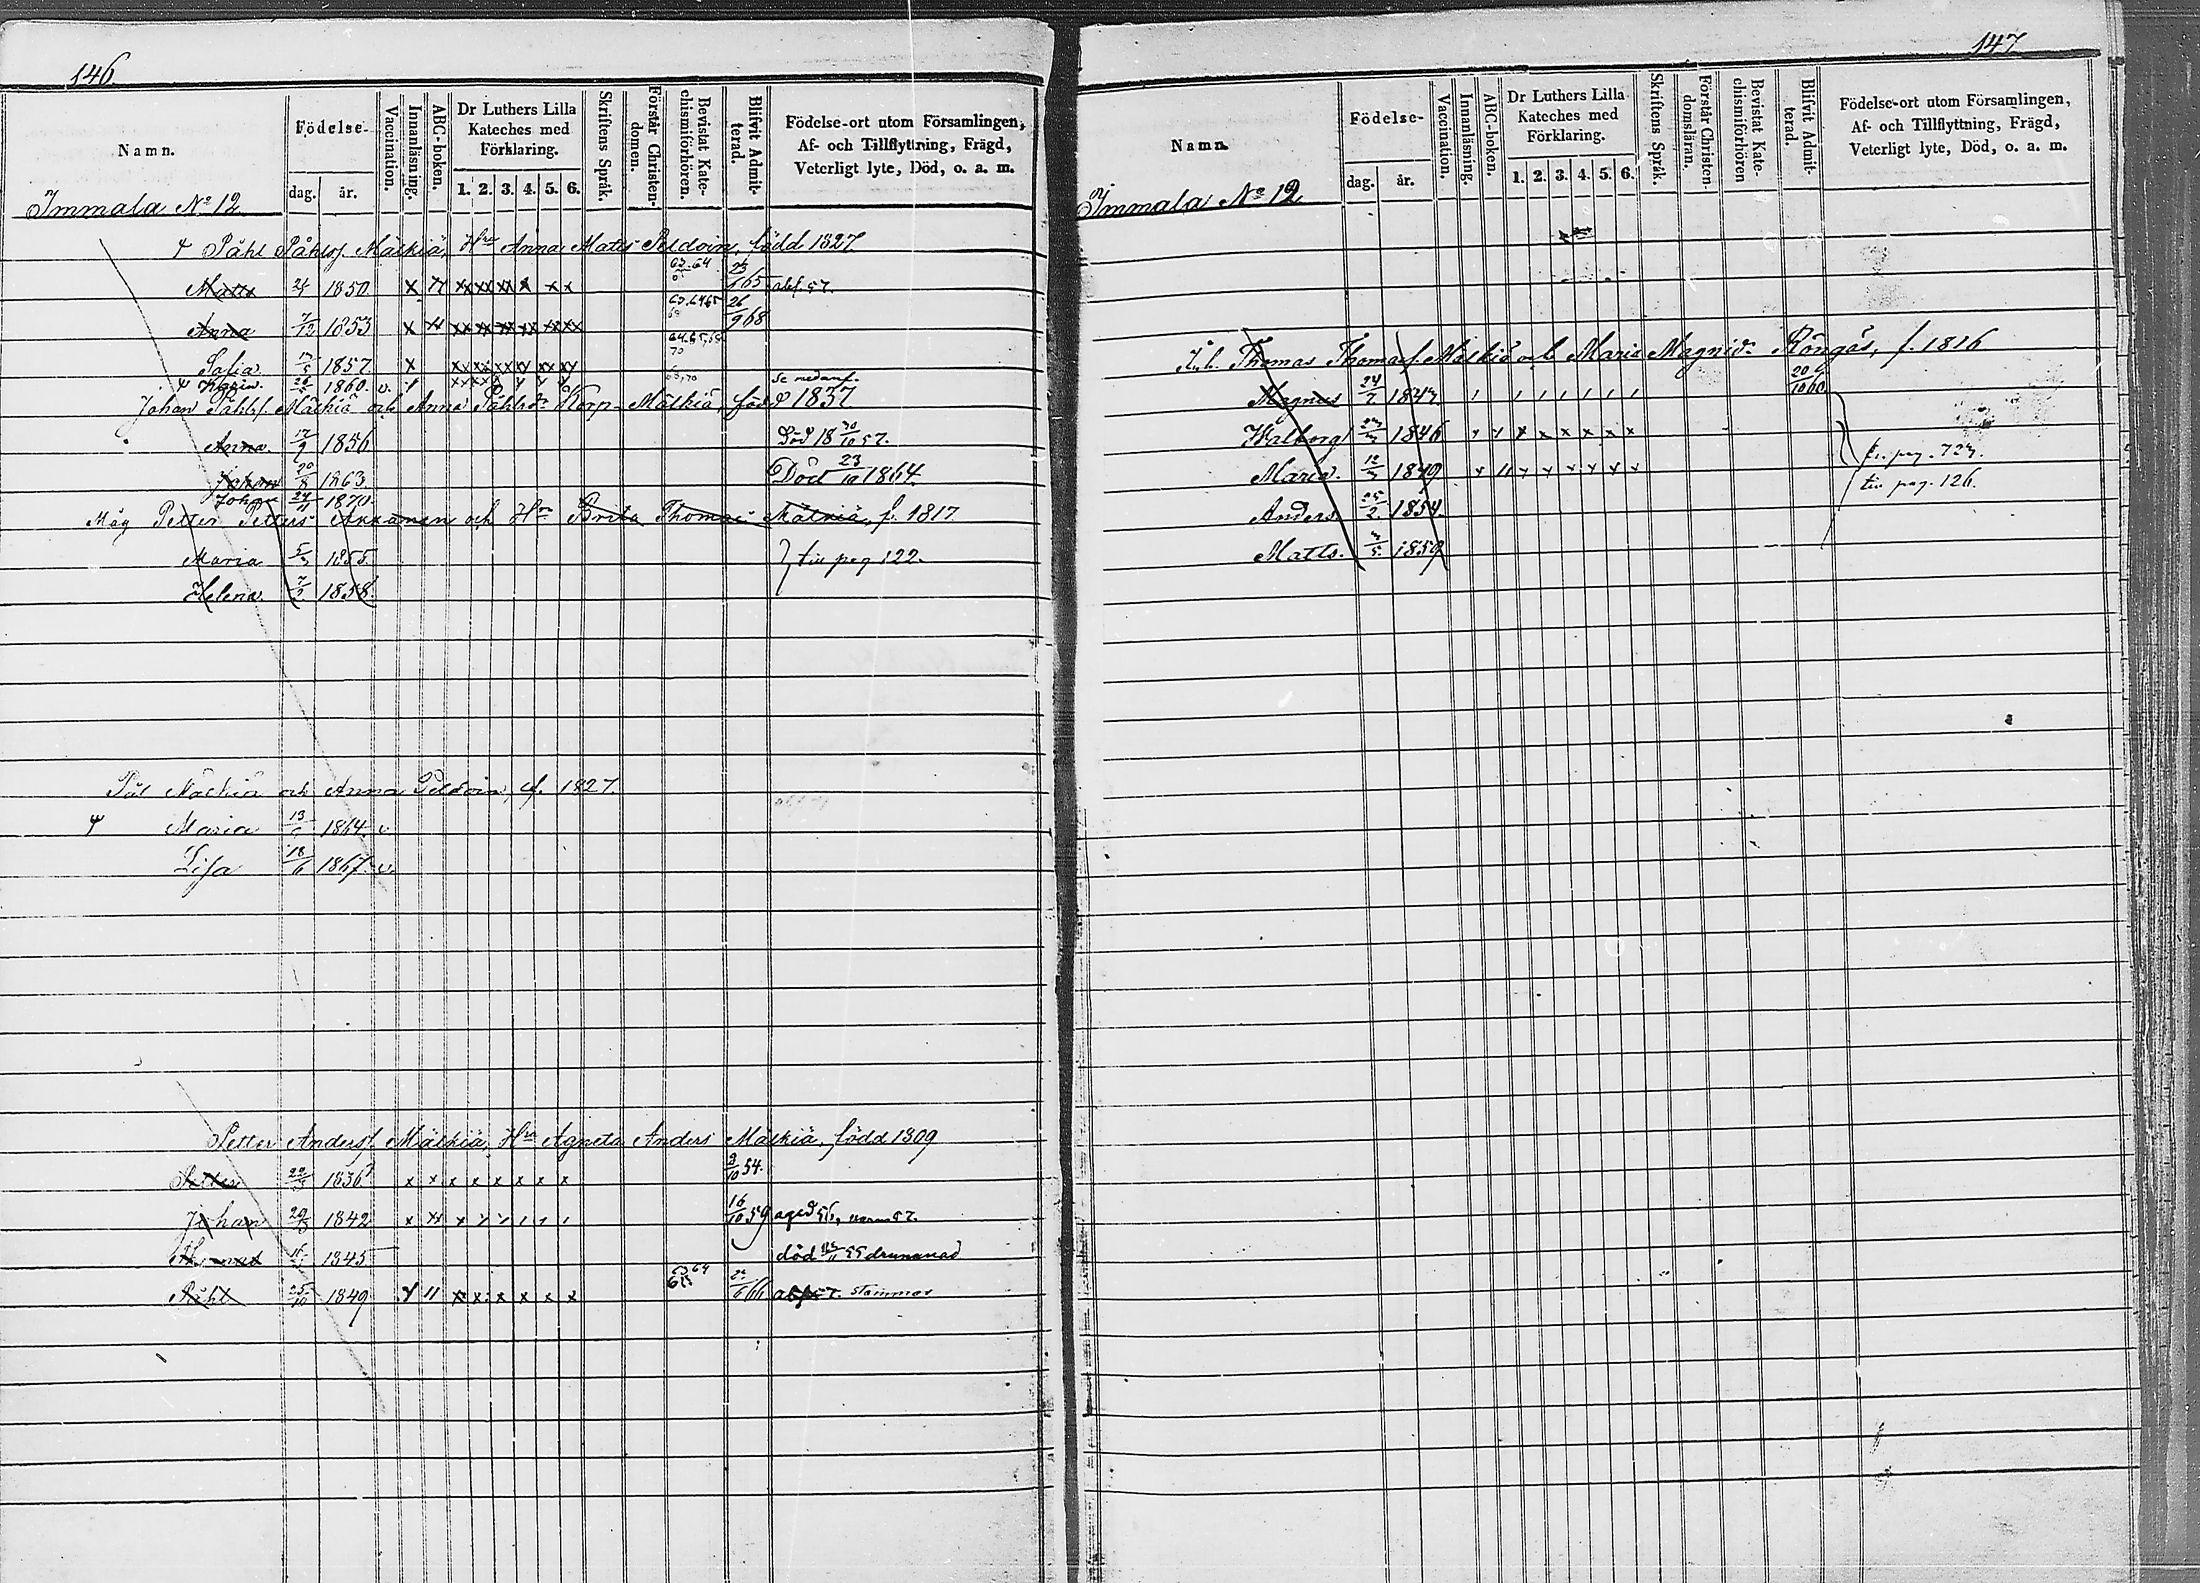 146
Namn. Födelse- dag. år. Vaccination. Innanläsning. ABC-boken. Dr Luthers Lilla Kateches med Förklaring. 1. 2. 3. 4. 5. 6. Skriftens Språk. Förstår Christendomen. Bevistat Katechismiförhören. Blifvit Admitterad. Födelse-ort utom Församlingen, Af- och Tillflyttning, Frägd, Veterligt lyte, Död, o. a. m.
Immala No 12
Påhl Påhlsf. Mälkiä, Hru Anna Mats Peldoin, född 1827
Matts 1850 x xx xx xx x x x 63.64 65 abf. 57.
Anna 7/12 1853 x xx xx xx xx xx xx 63.64.65 26/9 68
Sofia 1857. x 64.65,68 70
Karin 1860. v. 68,70 Se nedanf.
Johan Påhlsf. Mälkiä och Anna Påhlsdr Korp-Mälkiä, född 1837
Anna 17/9 1856 Död 18 30/10 57.
Johan 20/8 1863. Död 23/10 1864.
Johan 24/11 1870.
Måg Petter Petters Akkanen och Hru Brita Thomas Mälkiä, f. 1817
Maria 5/3 1855. tin pag 122.
Helena. 7/2 1858.
Pål Mälkiä och Anna Peldoin, f. 1827.
Maria 13 1864. v
Lisa 18/6 1867. v.
Petter Andersf. Mälkiä, Hru Agneta Anders Mälkiä, född 1809
Petter 22/3 1836 x x x x x x x x 9/10 54.
Johan 29/3 1842 16/10 59 aged 56, 57.
Thomas 1845 död 55 drunknad
Påhl 25/10 1849 63 64 65 66 abf 57. stammar
147
Namn. Födelse- dag. år. Vaccination. Innanläsning. ABC-boken. Dr Luthers Lilla Kateches med Förklaring. 1. 2. 3. 4. 5. 6. Skriftens Språk. Förstår Christendomsläran. Bevistat Katechismiförhören Blifvit Admitterad. Födelse-ort utom Församlingen, Af- och Tillflyttning, Frägd, Veterligt lyte, Död, o. a. m.
Immala No 12
Thomas Thomasf. Mälkiä och Maria Magnidr Röngäs, f. 1816
Magnus 24/7 1843. 20/10 60.
Walborg 1846
Maria. 12/3 1849 fr. pag. 723.
Anders. 25/2 1854. tin pag. 126.
Matts. 3/5 1859